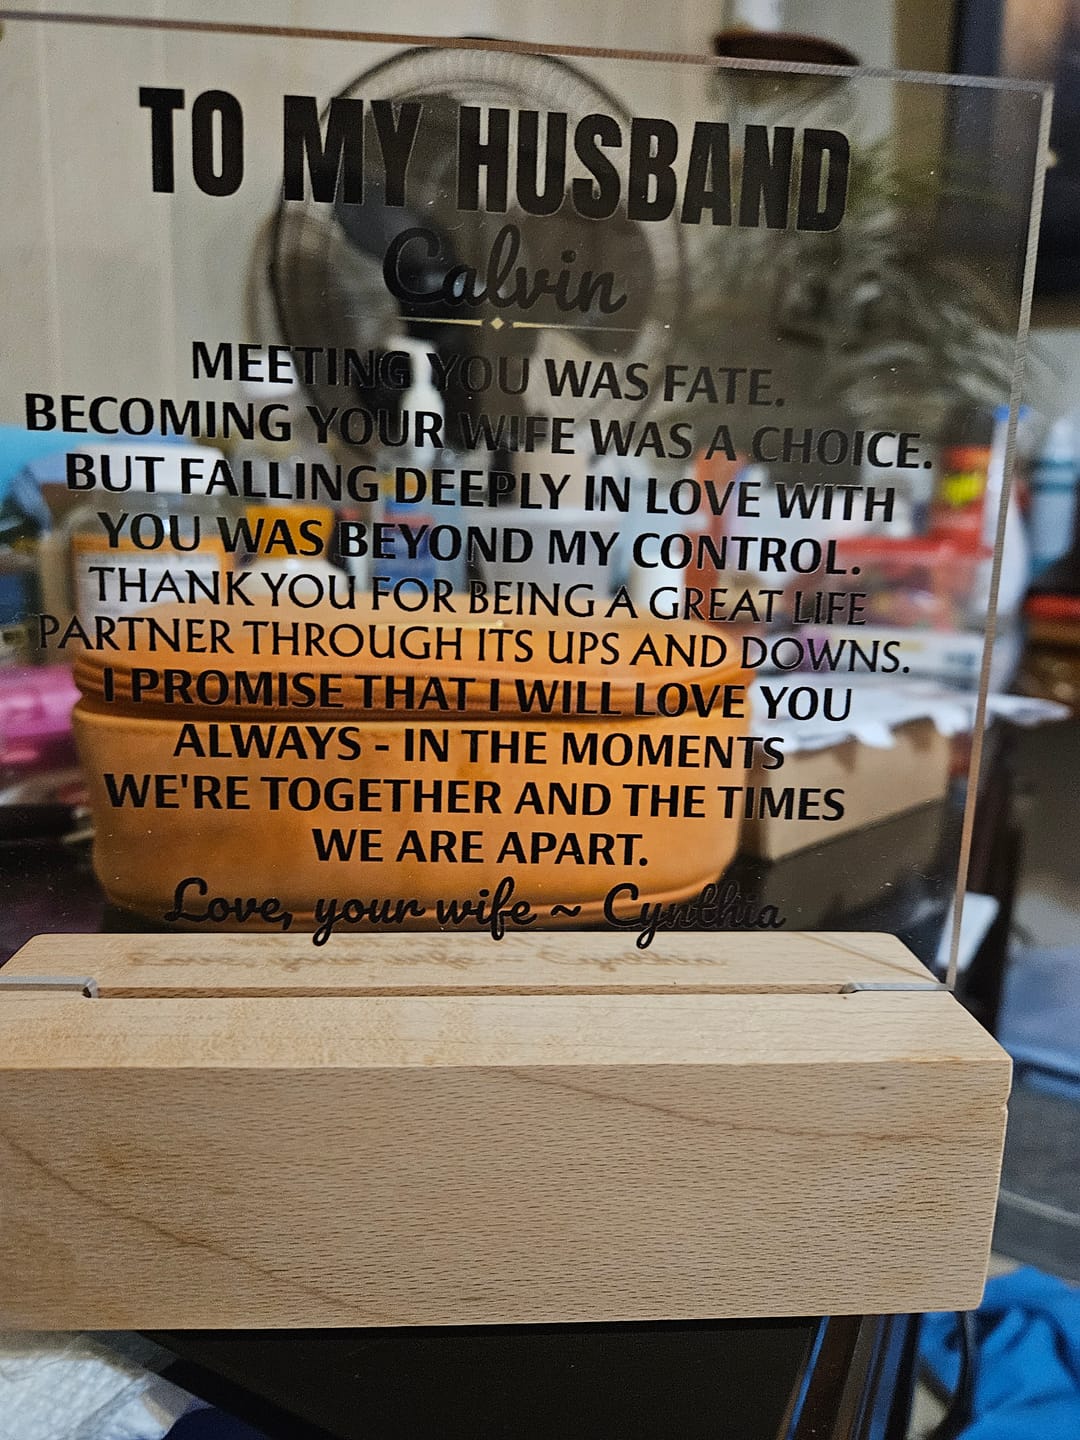 TO MY HUSBAND
Calvin
MEETING YOU WAS FATE.
BECOMING YOUR WIFE WAS A CHOICE.
BUT FALLING DEEPLY IN LOVE WITH
YOU WAS BEYOND MY CONTROL.
THANK YOU FOR BEING A GREAT LIFE
PARTNER THROUGH ITS UPS AND DOWNS.
I PROMISE THAT I WILL LOVE YOU
ALWAYS - IN THE MOMENTS
WE'RE TOGETHER AND THE TIMES
WE ARE APART.
Love, your wife ~ Cynthia